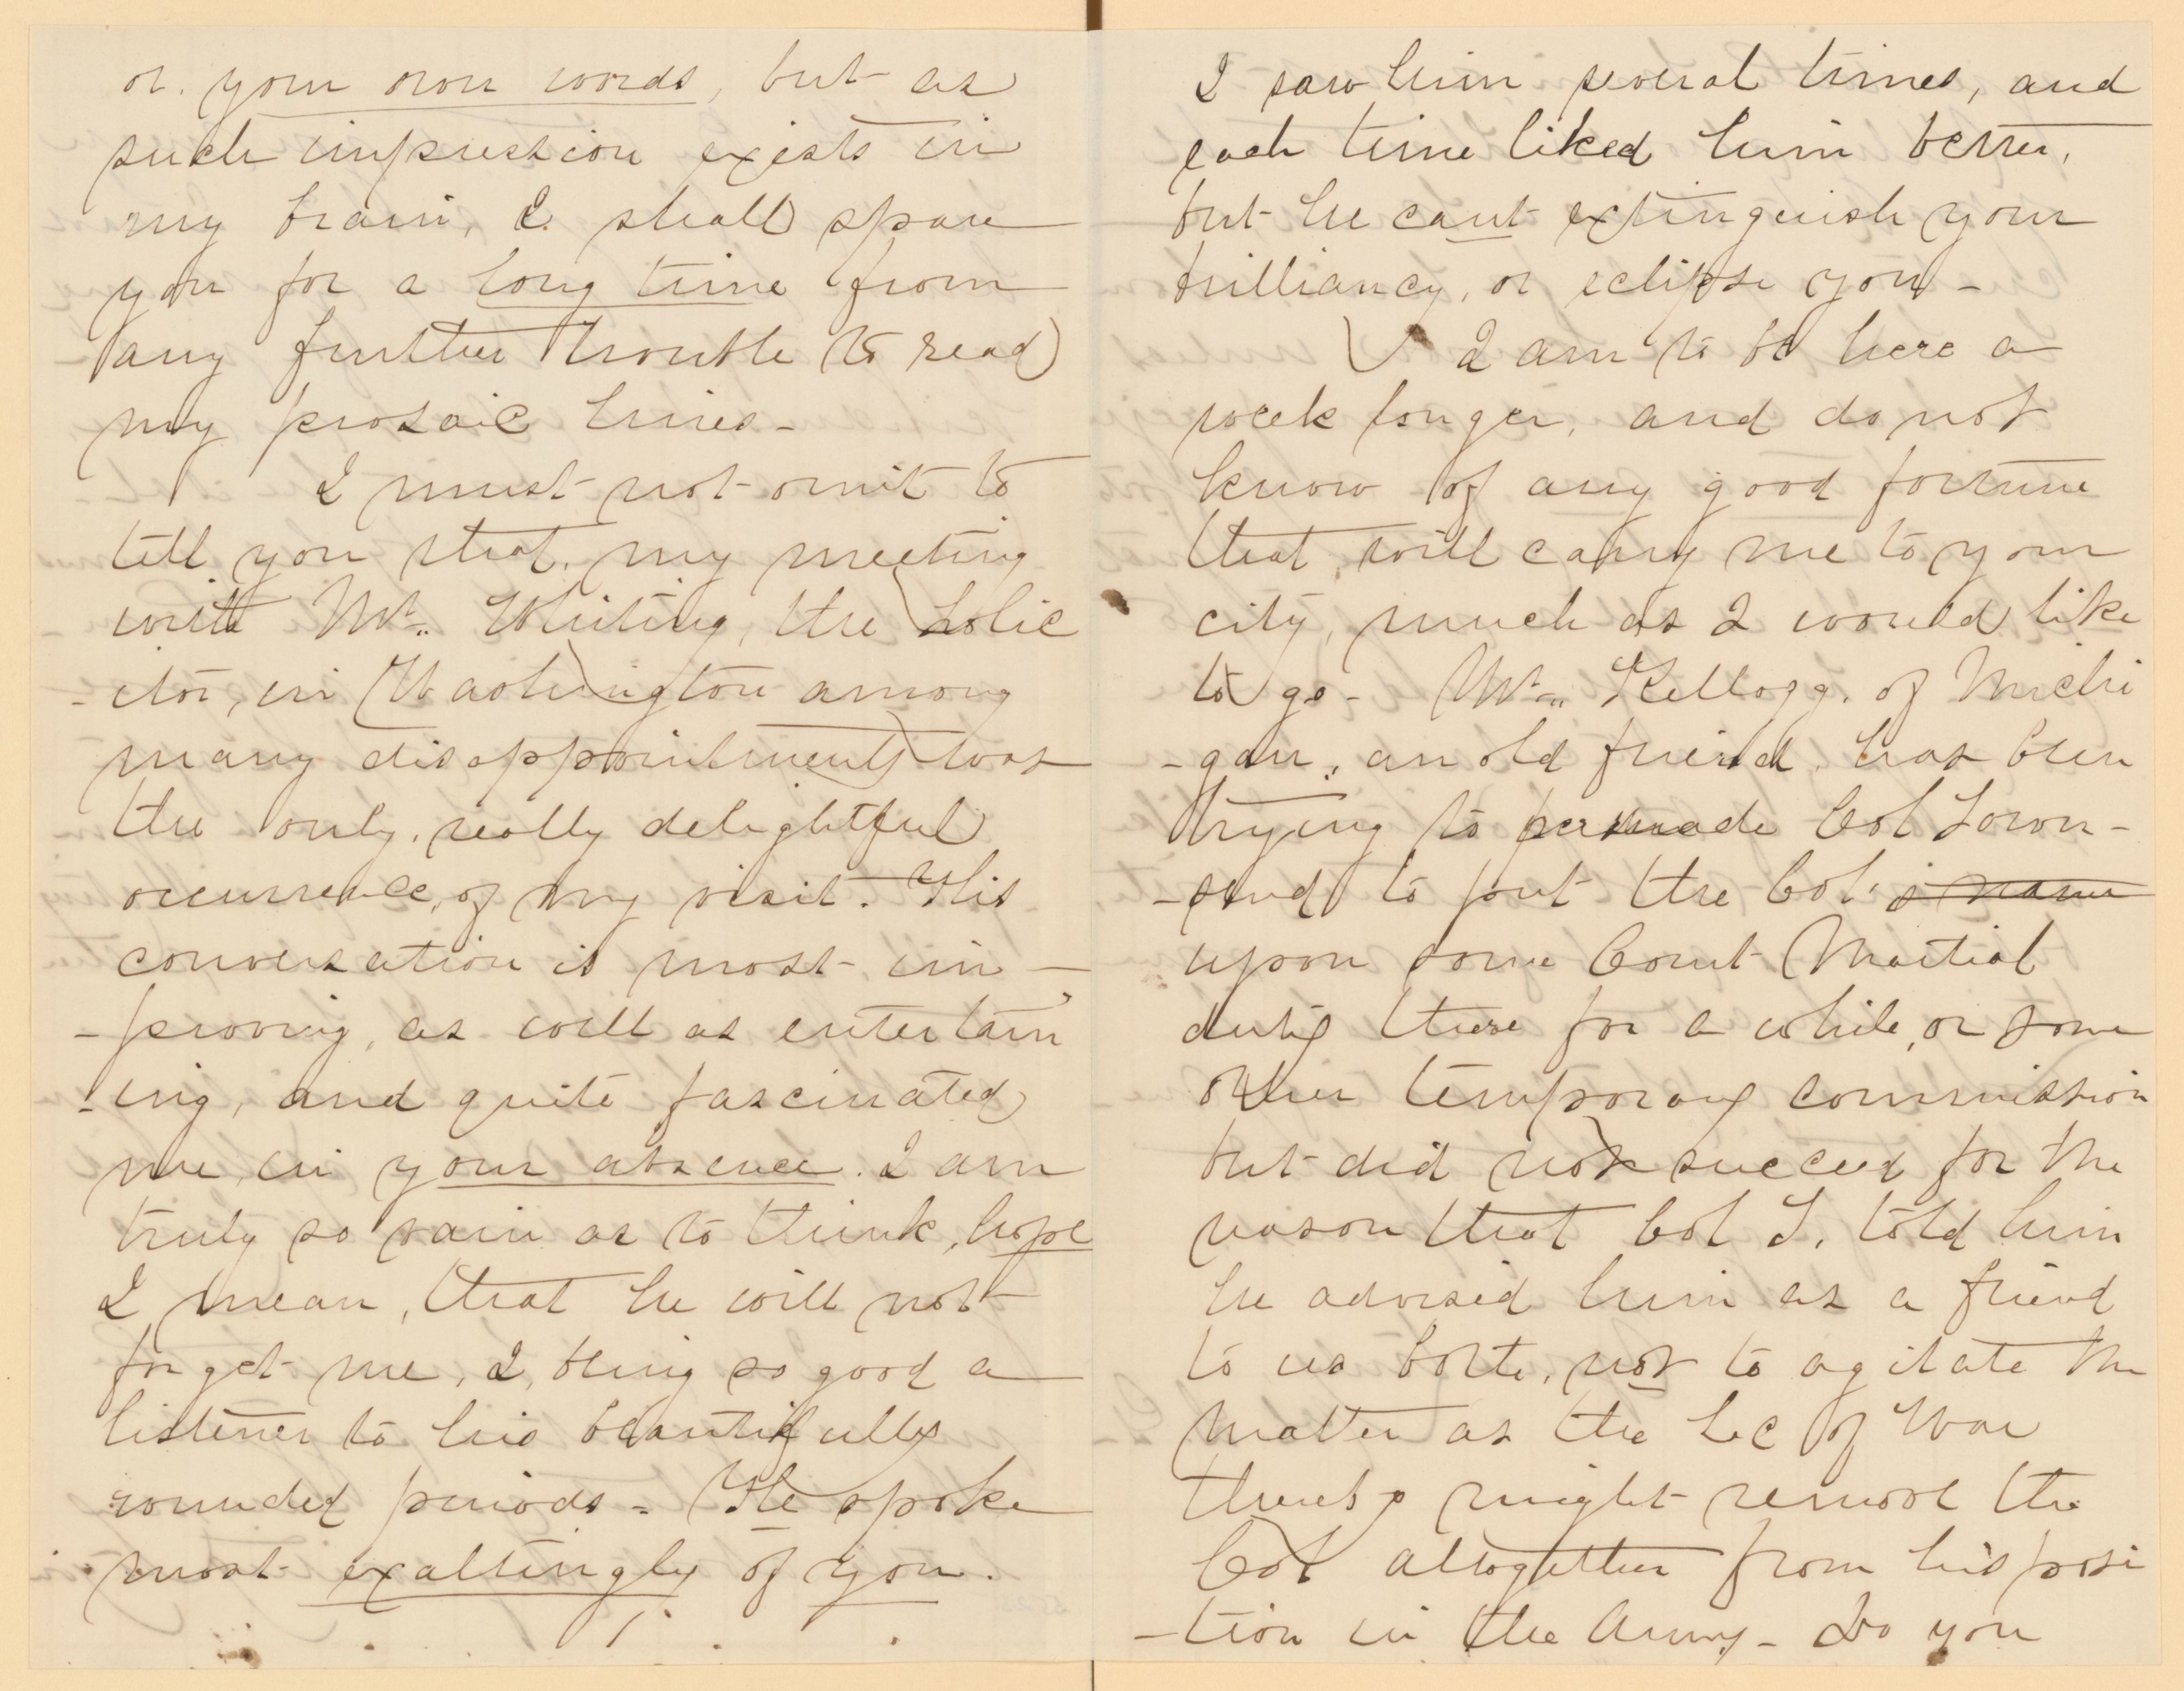 or. your own words, but as
such impression exists in
my brain, I shall spare
you for a long time from
any further trouble to read
my prosaic lines-
I must not omit to
tell you that, my meeting
with Mr. Whiting, the Solic
-itor, in Washington among
many disappointments was
the only, really delightful
occurrence, of my visit. His
conversation is most im-
-proving, as well as entertain
-ing, and quite fascinated
me, in your absence. I am
truly so vain as to think, hope
I mean, that he will not
forget me, I, being so good a
listener to his beautifully
rounded periods- He spoke
most exaltingly of you.
I saw him several times, and
each time liked him better,
but he cant extinguish your
brilliancy, or eclipse you-
I am to be here a
week longer, and do not
know of any good fortune
that, will carry me to your
city, much as I would like
to go- Mr. Kellogg, of Michi
-gan, an old friend, has been
trying to persuade Col Town-
-send to put the Col. 's name
upon some Court Martial
duty there for a while, or some
other temporary commission
but did not succeed for the
reason that Col T. told him
he advised him as a friend
to us both, not to agitate the
matter as the Sec of War
thereby might remove the
Col altogether from his posi
-tion in the Army- Do you